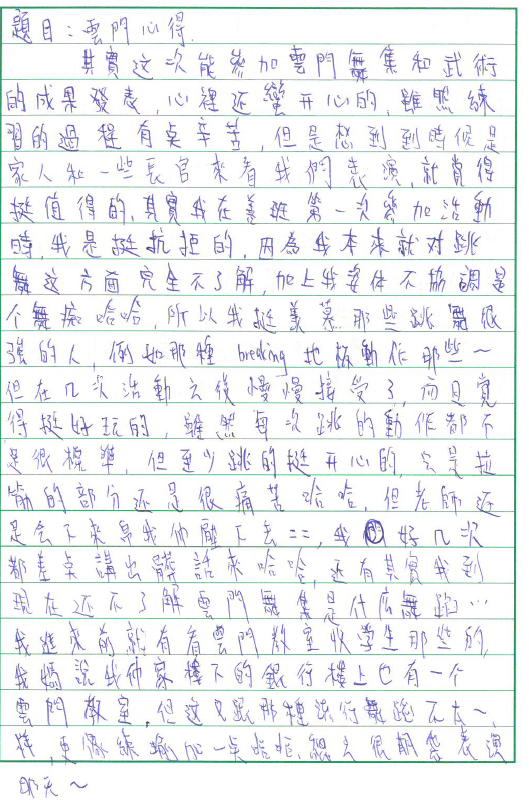 題目：雲門心得.
其實这次能參加雲門舞集和武術
的成果發表,心裡还蠻开心的,雖然練
習的過程有点辛苦,但是想到到時候是
家人和一些長官來看我們表演,就覺得
挺值得的,其實我在善班第一次參加活動
時,我是挺抗拒的,因為我本來就对跳
舞这方面完全不了解,加上我姿体不協調是
个舞痴哈哈,所以我挺羨慕那些跳舞很
強的人,例如那種breaking地板動作那些~
但在几次活動之後慢慢接受了,而且覺
得挺好玩的,雖然每次跳的動作都不
是很標準,但至少跳的挺开心的,只是拉
筋的部分还是很痛苦哈哈,但老師还
是会下來幫我們壓下去==,我好几次
都差点講出髒話來哈哈,还有其實我到
現在还不了解雲門舞集是什広舞蹈…
我進來前就有看雲門教室收学生那些的,
我媽說我們家樓下的銀行樓上也有一个
雲門教室,但这又跟那種流行舞蹈不太一
樣,更像練瑜加一点哈哈,總之很期待表演
那天~